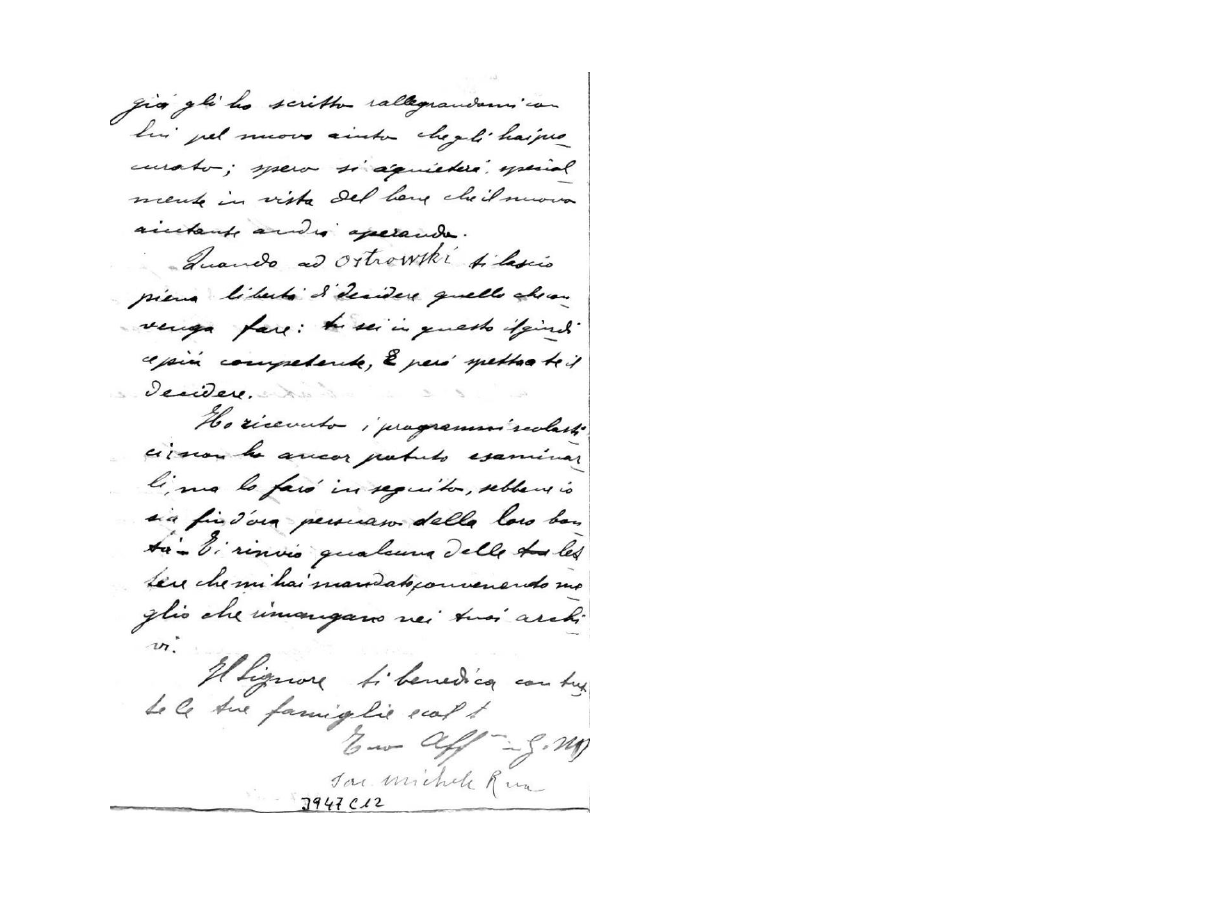 già gli ho scritto rallegrandomi con
lui pel nuovo aiuto che gli hai pro_
curato; spero si aquieterà special_
mente in vista del bene che il nuovo
aiutante andrà operando.
Quando ad Ostrowski ti lascio
piena libertà di decidere quello che con
venga fare: tu sei in questo il giudi_
ce più competente, E però spetta a te il
decidere.
Ho ricevuto i programmi scolasti_
ci; non ho ancor potuto esaminar_
li, ma lo farò in seguito, sebbene io
sia fin d'ora persuaso della loro bon_
tà - Ti rinvio qualcuna delle tue let_
tere che mi hai mandato, convenendo me_
glio che rimangano nei tuoi archi_
vi.
Il Signore ti benedica con tut_
te le tue famiglie e col t
Tuo Aff in G. M
Sac. Michele Rua
3947 C12